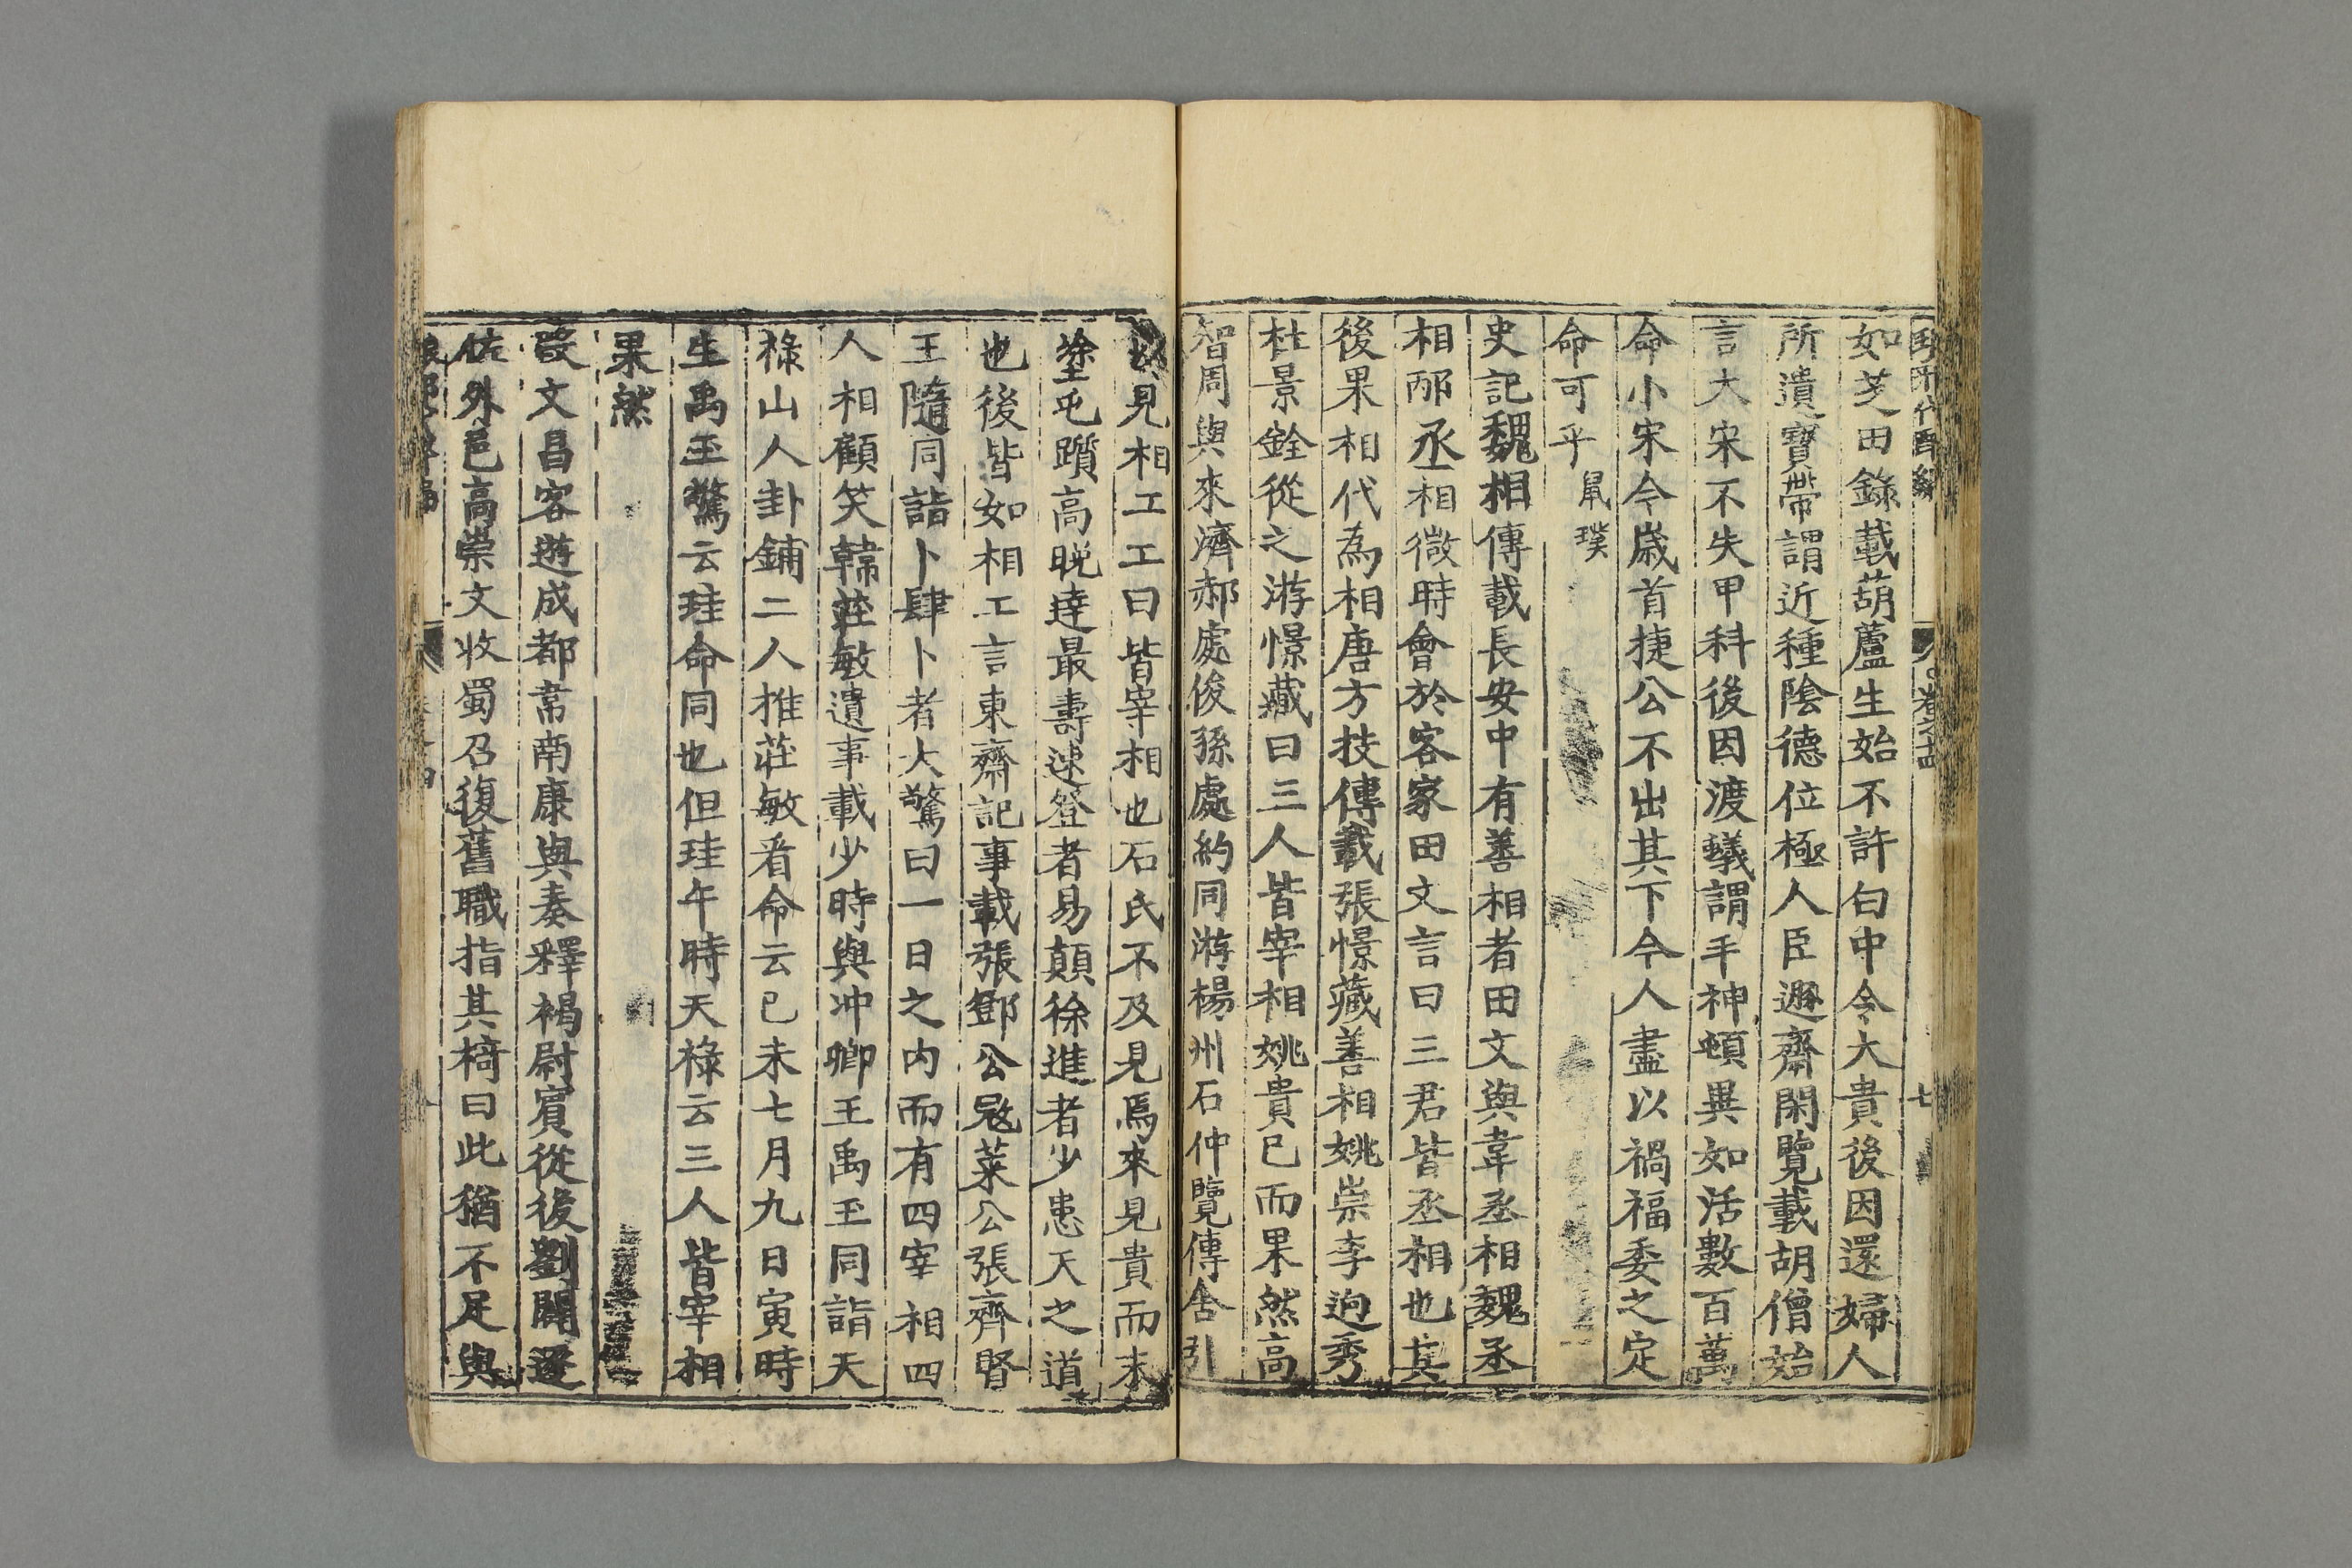 卷之十四
七
如芝田錄載葫蘆生始不許白中令大貴後因還婦人
所遺寶帶謂近種陰德位極人臣遯齋閑覽載胡僧始
言大宋不失甲科後因渡蟻謂丰神頓異如活數百萬
命小宋今歲首捷公不出其下今人盡以禍福委之定
命可乎鼠璞
史記魏相傳載長安中有善相者田文與韋丞相魏丞
相邴丞相微時會於客家田文言曰三君皆丞相也其
後果相代為相唐方技傳載張憬藏善相姚崇李逈秀
杜景銓從之游憬藏曰三人皆宰相姚貴已而果然高
智周與來濟郝處俊孫處約同游楊州石仲覽傳舍引
以見相工工曰皆宰相也石氏不及見焉來見貴而末
塗屯躓高晚逹最壽速登者易顛徐進者少患天之道
也後皆如相工言東齋記事載張鄧公冦萊公張齊賢
王隨同詣卜肆卜者大驚曰一日之内而有四宰相四
人相顧笑韓莊敏遺事載少時與冲卿王禹玉同詣天
祿山人卦鋪二人推莊敏看命云己未七月九日寅時
生禹玉驚云珪命同也但珪午時天祿云三人皆宰相
果然
叚文昌客遊成都韋南康與奏釋褐尉賓從後劉闢逐
佐外邑高崇文收蜀召復舊職指其椅曰此猶不足與